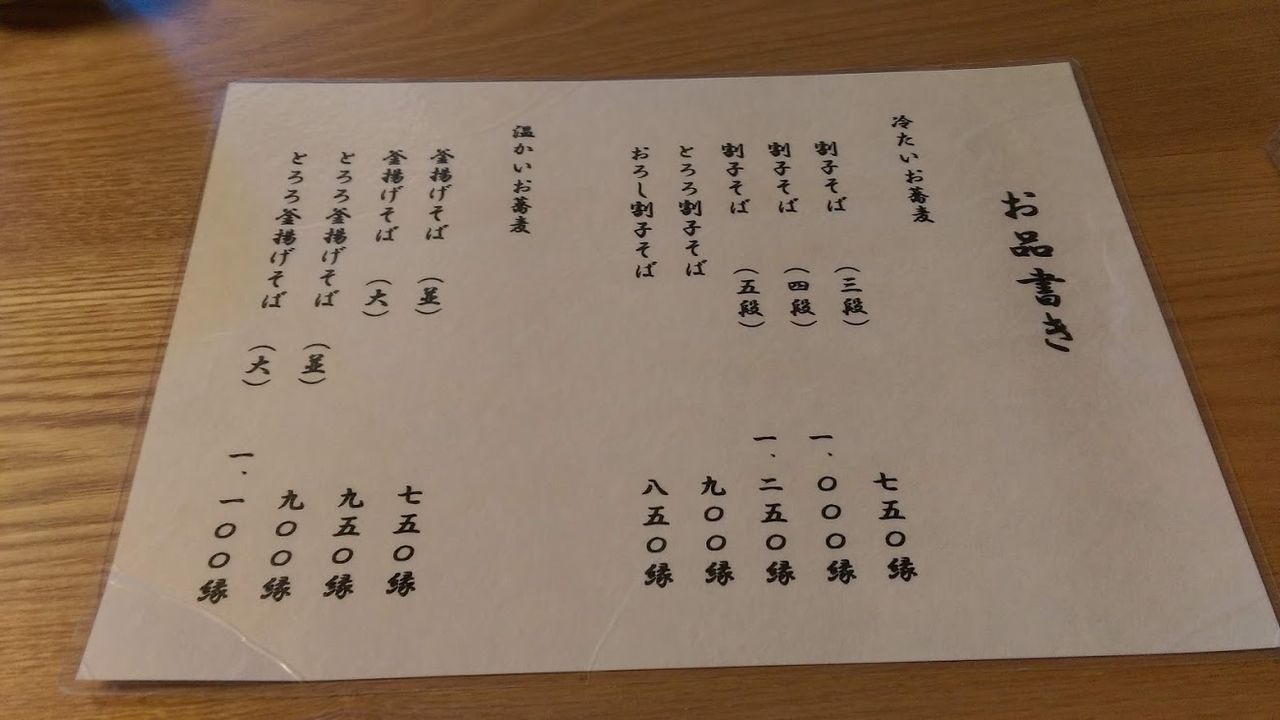 お品書き
冷たいお蕎麦
割子そば （三段） 七五〇縁
割子そば （四段） 一、〇〇〇縁
割子そば （五段） 一、二五〇縁
とろろ割子そば 九〇〇縁
おろし割子そば 八五〇縁
温かいお蕎麦
釜揚げそば （並） 七五〇縁
釜揚げそば （大） 九五〇縁
とろろ釜揚げそば （並） 九〇〇縁
とろろ釜揚げそば （大） 一、一〇〇縁